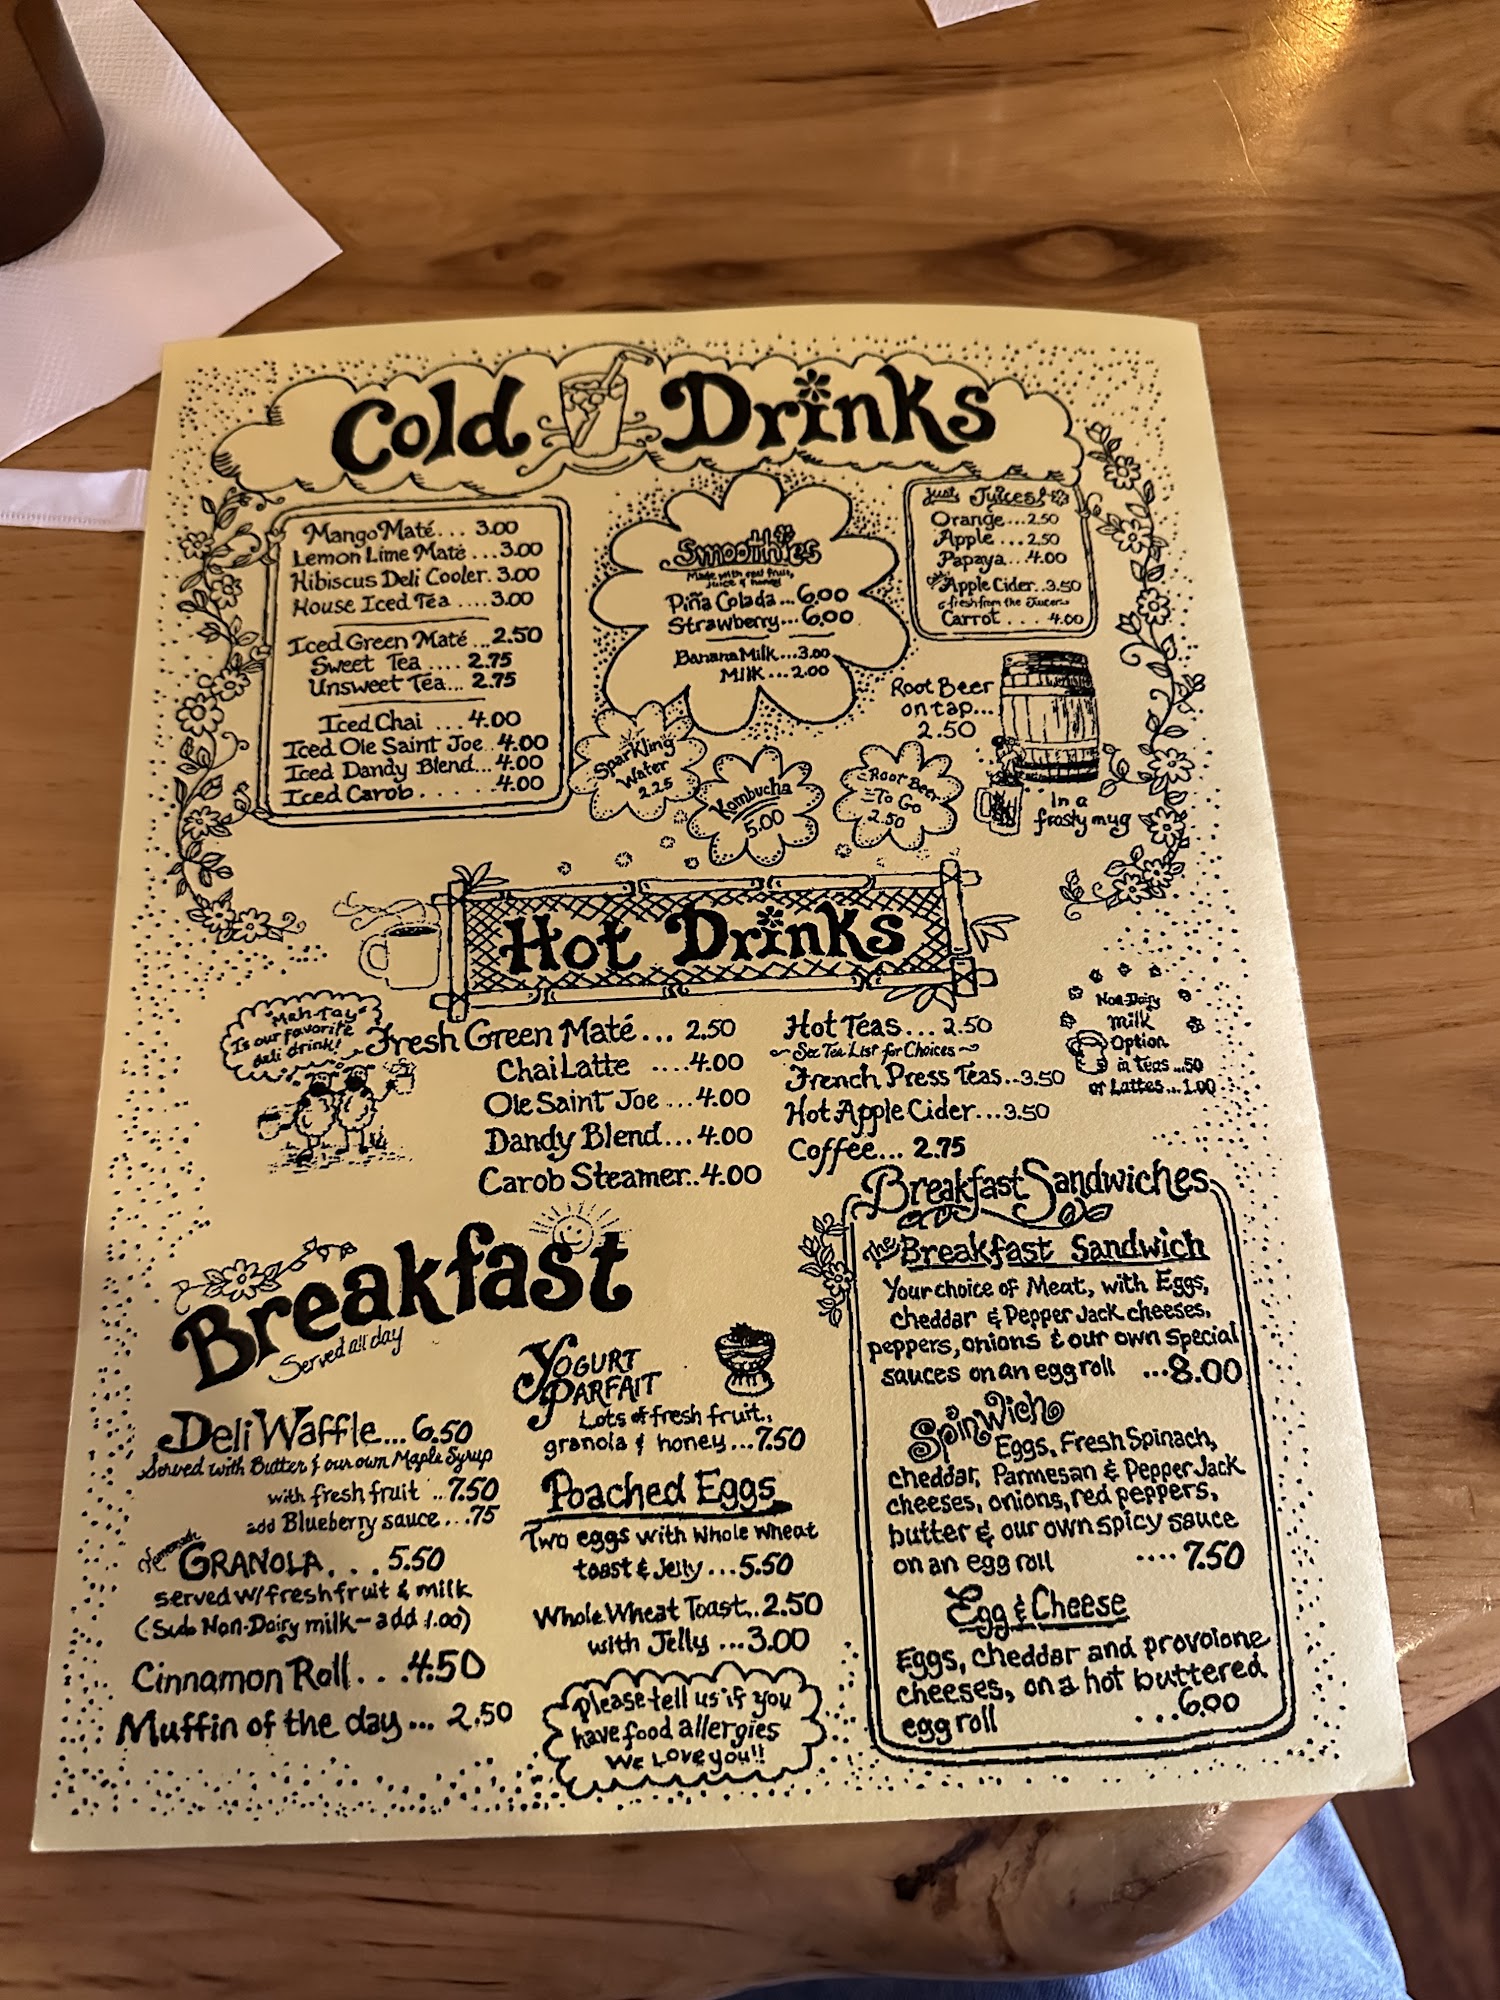 Cold Drinks
Mango Maté... 3.00
Lemon Lime Maté ...3.00
Hibiscus Deli Cooler. 3.00
House Iced Tea ....3.00
Iced Green Maté ...2.50
Sweet Tea .... 2.75
Unsweet Tea... 2.75
Iced Chai ...4.00
Iced Ole Saint Joe..4.00
Iced Dandy Blend...4.00
Iced Carob . . . . . .4.00
Smoothies
Made with real fruit,
juice & honey
Piña Colada ...6.00
Strawberry...6.00
Banana Milk...3.00
Milk...2.00
Just Juices!
Orange...2.50
Apple ...2.50
Papaya...4.00
Apple Cider..3.50
fresh from the Juicer
Carrot . . . 4.00
Root Beer
on tap...
2.50
In a
frosty mug
Sparkling
Water
2.25
Kombucha
5.00
Root Beer
To Go
2.50
Hot Drinks
"Mah-Tay"
Is our favorite
deli drink!
Fresh Green Maté... 2.50
Chai Latte ....4.00
Ole Saint Joe ...4.00
Dandy Blend...4.00
Carob Steamer..4.00
Hot Teas... 2.50
See Tea List for Choices
French Press Teas..3.50
Hot Apple Cider...3.50
Coffee... 2.75
Non-Dairy
Milk
Option
in Teas ...50
or Lattes...1.00
Breakfast
Served all day
Deli Waffle...6.50
Served with Butter & our own Maple Syrup
with fresh fruit ..7.50
add Blueberry sauce...75
Homemade
GRANOLA. . . 5.50
served w/fresh fruit & milk
(Sub Non-Dairy milk - add 1.00)
Cinnamon Roll. . .4.50
Muffin of the day... 2.50
YOGURT
PARFAIT
Lots of fresh fruit,
granola & honey...7.50
Poached Eggs
Two eggs with Whole Wheat
toast & Jelly...5.50
Whole Wheat Toast..2.50
with Jelly ...3.00
Please tell us if you
have food allergies
We Love you!!
Breakfast Sandwiches
The Breakfast Sandwich
Your choice of Meat, with Eggs,
cheddar & Pepper Jack cheeses,
peppers, onions & our own special
sauces on an egg roll ...8.00
Spinwich
Eggs, Fresh Spinach,
cheddar, Parmesan & Pepper Jack
cheeses, onions, red peppers,
butter & our own spicy sauce
on an egg roll ....7.50
Egg & Cheese
Eggs, cheddar and provolone
cheeses, on a hot buttered
egg roll ...6.00